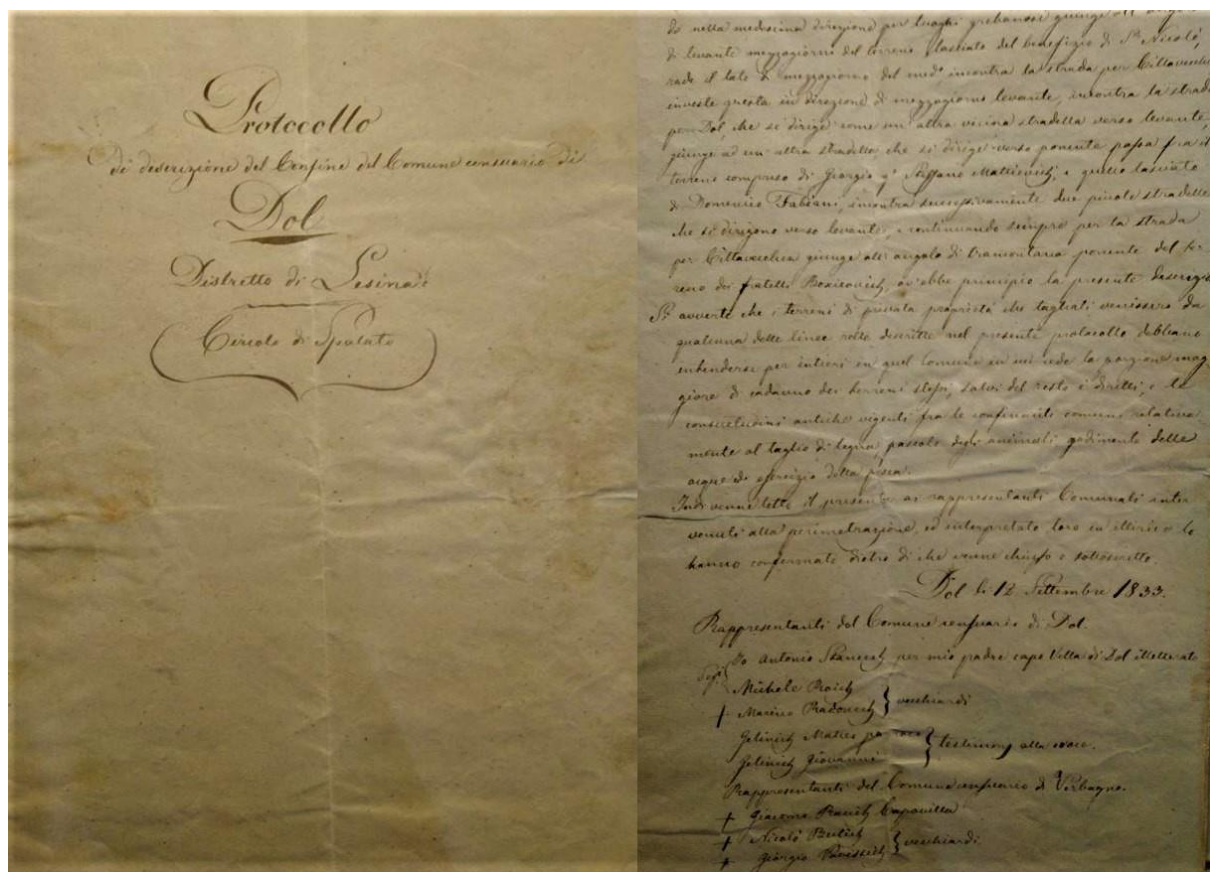 Protocollo
di descrizione del Confine del Comune censuario di
Dol
Distretto di Lesina
Circolo di Spalato
do nella medesima direzione per luoghi grebanosi giunge all'angolo
di levante mezzogiorno del terreno lasciato del benefizio di Sn Nicolò,
rade il lato di mezzogiorno del medo incontra la strada per Cittavecchia
investe questa in direzione di mezzogiorno levante, incontra la strada
per Dol che si dirige come un'altra vicina stradella verso levante,
giunge ad un'altra stradella che si dirige verso ponente passa fra il
terreno compreso di Giorgio qm Steffano Mattievich, e quello lasciato
di Domenico Fabiani, incontra successivamente due picole stradelle
che si dirigono verso levante, e continuando sempre per la strada
per Cittavecchia giunge all'angolo di tramontana ponente del ter
reno dei fratelli ov'ebbe principio la presente descrizio
Si avverte che i terreni di privata proprietà che tagliati venissero da
qualcuna delle linee rette descritte nel presente protocollo debbano
intendersi per intieri in quel Comune in cui vede la porzione mag
giore di cadauno dei terreni stessi, salvi del resto i diritti, e le
consuetudini antiche vigenti fra le confinanti comuni relativa
mente al taglio di legna, pascolo degli animali, godimento delle
acque ed esercizio della pesca.
Indi venne letto il presente ai rappresentanti Comunali inter
venuti alla perimetrazione, ed interpretato loro in illirico lo
hanno confermato dietro di che venne chiuso e sottoscritto.
Dol li 12 Settembre 1833.
Rappresentanti del Comune censuario di Dol.
Io Antonio per mio padre capo Villa di Dol illetterato
Michele Roich
+ Marino Radonich } vecchiardi
Gelinich Matteo
Gelinich Giovanni } testimonj alla croce.
Rappresentanti del Comune censuario di Verbagno.
+ Giacomo Capovilla
+ Nicolò
+ Giorgio } vecchiardi